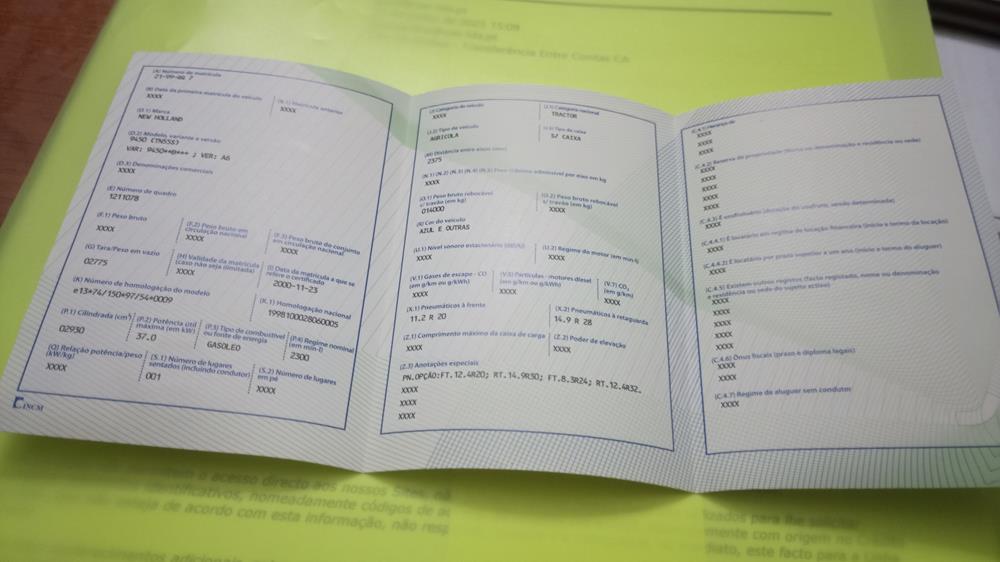 (A) Número de matrícula
(B) Data da primeira matrícula do veículo
XXXX
(D.1) Marca
NEW HOLLAND
(D.2) Modelo, variante e versão
9450 (TN55S)
VAR: 9450**@*** ; VER: A6
(D.3) Denominações comerciais
XXXX
(E) Número de quadro
1211078
(F.1) Peso bruto
XXXX
(F.2) Peso bruto em
circulação nacional
XXXX
(F.3) Peso bruto do conjunto
em circulação nacional
XXXX
(G) Tara/Peso em vazio
02775
(H) Validade da matrícula
(caso não seja ilimitada)
XXXX
(I) Data da matrícula a que se
refere o certificado
2000-11-23
(K) Número de homologação do modelo
e13*74/150*97/54*0009
(X.1) Homologação nacional
1998100028060005
(P.1) Cilindrada (cm³)
02930
(P.2) Potência útil
máxima (em kW)
37.0
(P.3) Tipo de combustível
ou fonte de energia
GASOLEO
(P.4) Regime nominal
(em min-l)
2300
(Q) Relação potência/peso
(kW/kg)
XXXX
(S.1) Número de lugares
sentados (incluindo condutor)
001
(S.2) Número de lugares
em pé
XXXX
INCM
(J) Categoria do veículo
XXXX
(J.1) Categoria nacional
TRACTOR
(J.2) Tipo de veículo
AGRICOLA
(J.3) Tipo de caixa
S/ CAIXA
(M) Distância entre eixos (mm)
2375
XXXX
(O.1) Peso bruto rebocável
c/ travão (em kg)
014000
(O.2) Peso bruto rebocável
s/ travão (em kg)
XXXX
(R) Cor do veículo
AZUL E OUTRAS
(U.1) Nível sonoro estacionário (dB(A))
XXXX
(U.2) Regime do motor (em min-l)
XXXX
(V.1) Gases de escape - CO
(em g/km ou g/kWh)
XXXX
(V.5) Partículas - motores diesel
(em g/km ou g/kWh)
XXXX
(V.7) CO₂
(em g/km)
XXXX
(X.1) Pneumáticos à frente
11.2 R 20
(X.2) Pneumáticos à retaguarda
14.9 R 28
(Z.1) Comprimento máximo da caixa de carga
XXXX
(Z.2) Poder de elevação
XXXX
(Z.3) Anotações especiais
PN.OPÇÃO:FT.12.4R20; RT.14.9R30; FT.8.3R24; RT.12.4R32.
XXXX
XXXX
XXXX
XXXX
XXXX
XXXX
(C.4.2) Reserva de propriedade (Nome ou denominação e residência ou sede)
XXXX
XXXX
XXXX
XXXX
XXXX
(C.4.3) É usufrutuário (duração do usufruto, sendo determinada)
XXXX
(C.4.4.1) É locatário em regime de locação financeira (início e termo da locação)
XXXX
(C.4.4.2) É locatário por prazo superior a um ano (início e termo do aluguer)
XXXX
(C.4.5) Existem outros registos (facto registado, nome ou denominação
e residência ou sede do sujeito activo)
XXXX
XXXX
XXXX
XXXX
XXXX
(C.4.6) Ónus fiscais (prazo e diploma legais)
XXXX
(C.4.7) Regime de aluguer sem condutor
XXXX
o acesso directo aos nossos Sites
identificativos, nomeadamente códigos de
de acordo com esta informação, não